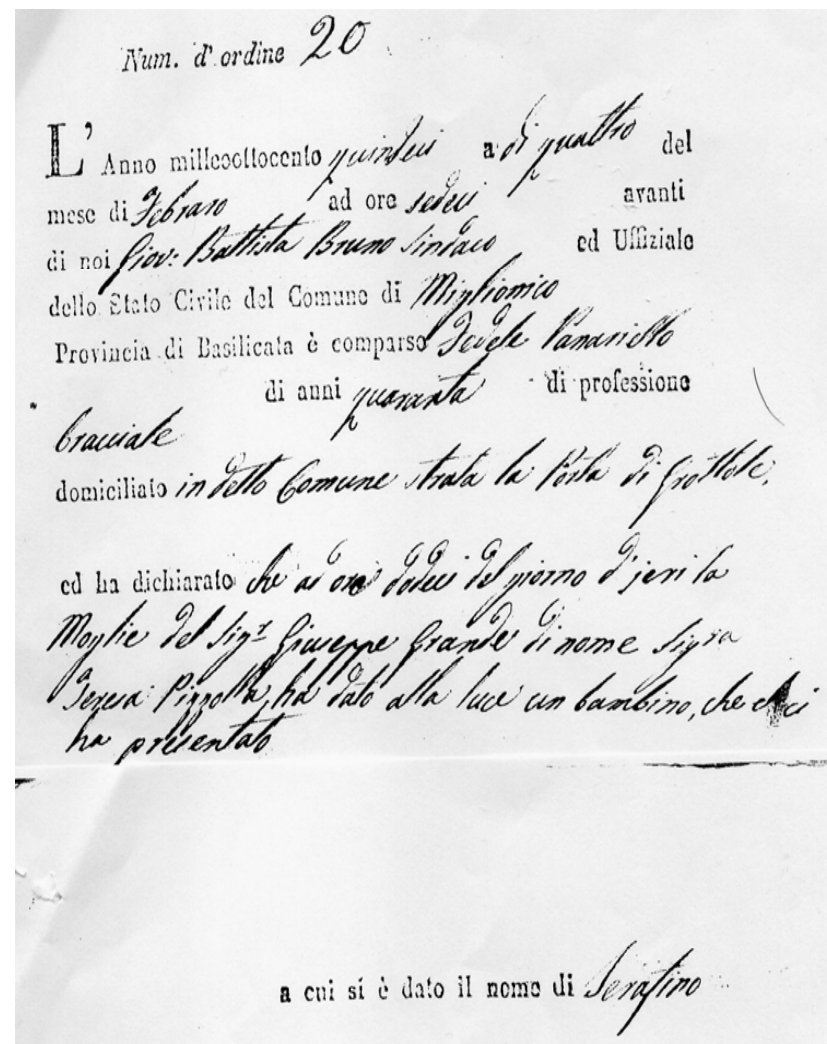 Num. d'ordine 20
L'Anno milleottocento quindeci a di quattro del
mese di Febraro ad ore sedeci avanti
di noi Giov: Battista Bruno Sindaco ed Uffiziale
dello Stato Civile del Comune di Miglionico
Provincia di Basilicata è comparso Fedele Panariello
di anni quaranta di professione
bracciale
domiciliato in detto Comune strata la Porta di Grottole,
ed ha dichiarato che ad ore dodeci del giorno d'jeri la
Moglie del Sigr Giuseppe Grande di nome Sigra
Teresa Pizzolla, ha dato alla luce un bambino, che ci
ha presentato
a cui si è dato il nome di Serafino